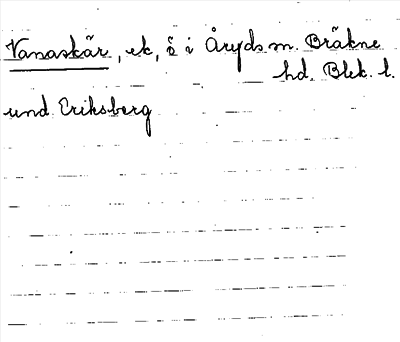 Vanaskär, ek, ö i Åryds sn. Bräkne
hd. Blek. l.
und. Eriksberg